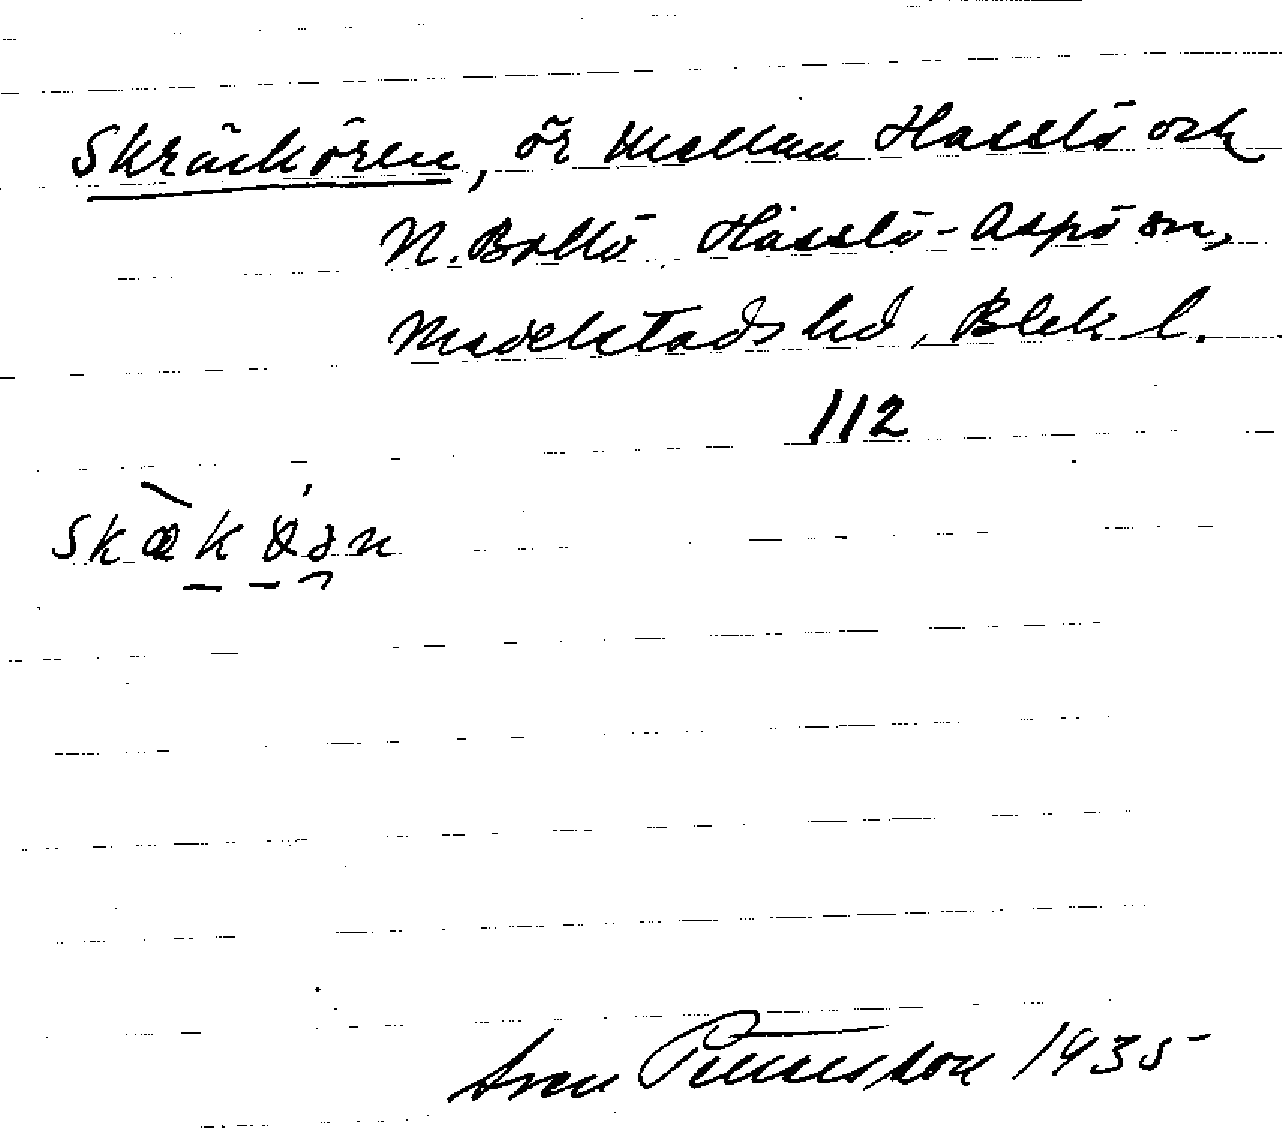 Skräckören, ör mellan Hasslö och
N. Bollö, Hasslö-Aspö sn,
Medelstads hd, Blek. l.
112
Sven Benson 1935